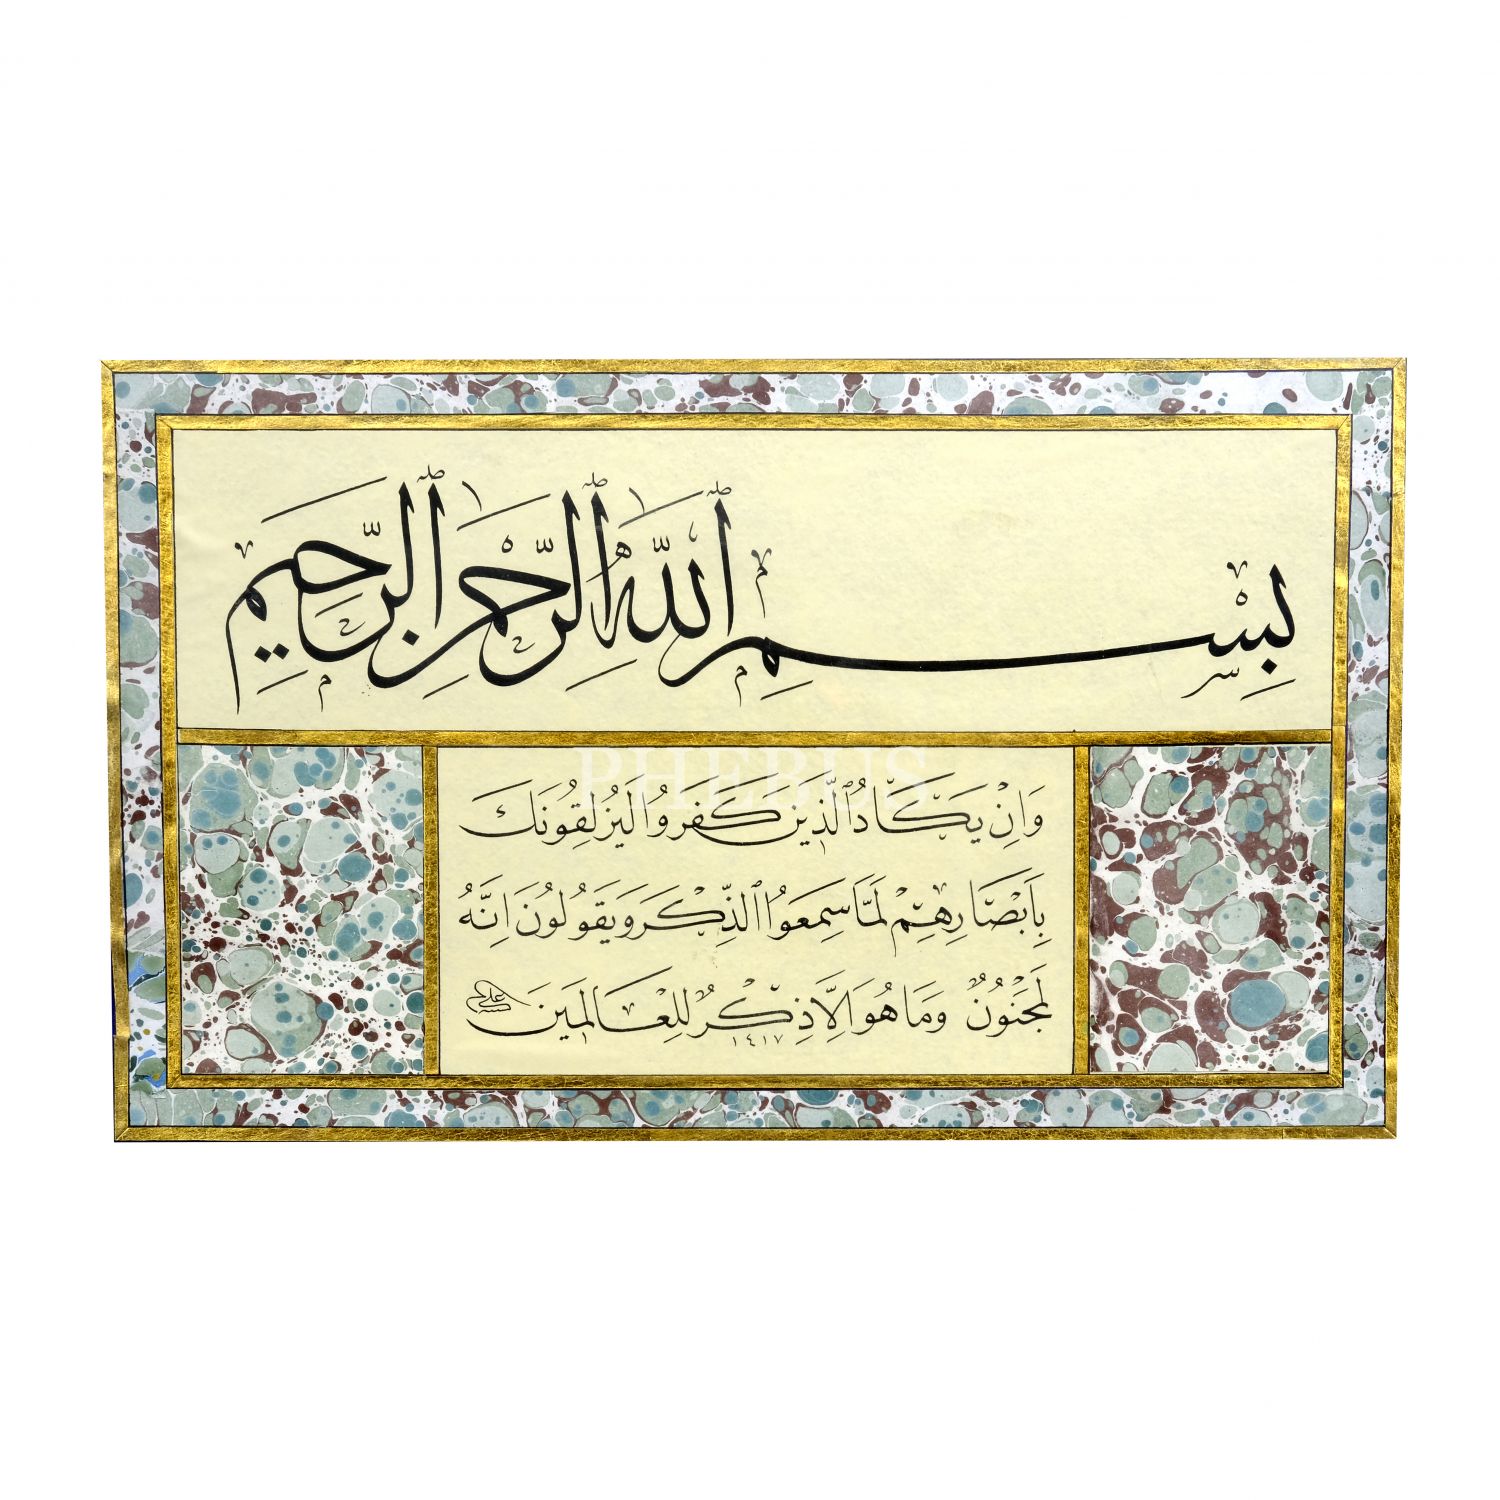 بِسْمِ ٱللّٰهِ ٱلرَّحْمٰنِ ٱلرَّحِيمِ
PHEBUS
وَاِنْ يَكَادُ ٱلَّذِينَ كَفَرُوا لَيُزْلِقُونَكَ
بِاَبْصَارِهِمْ لَمَّا سَمِعُوا ٱلذِّكْرَ وَيَقُولُونَ اِنَّهُ
لَمَجْنُونٌ وَمَا هُوَ اِلَّا ذِكْرٌ لِلْعَالَمِينَ
١٤١٧